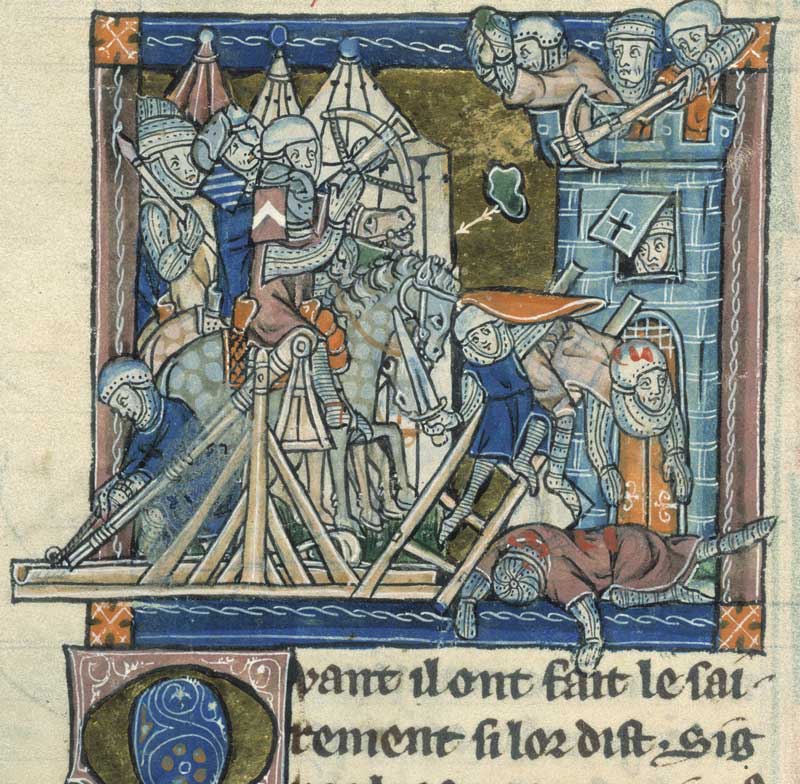 Quant il ont fait le sai-
rement si lor dist. Sig